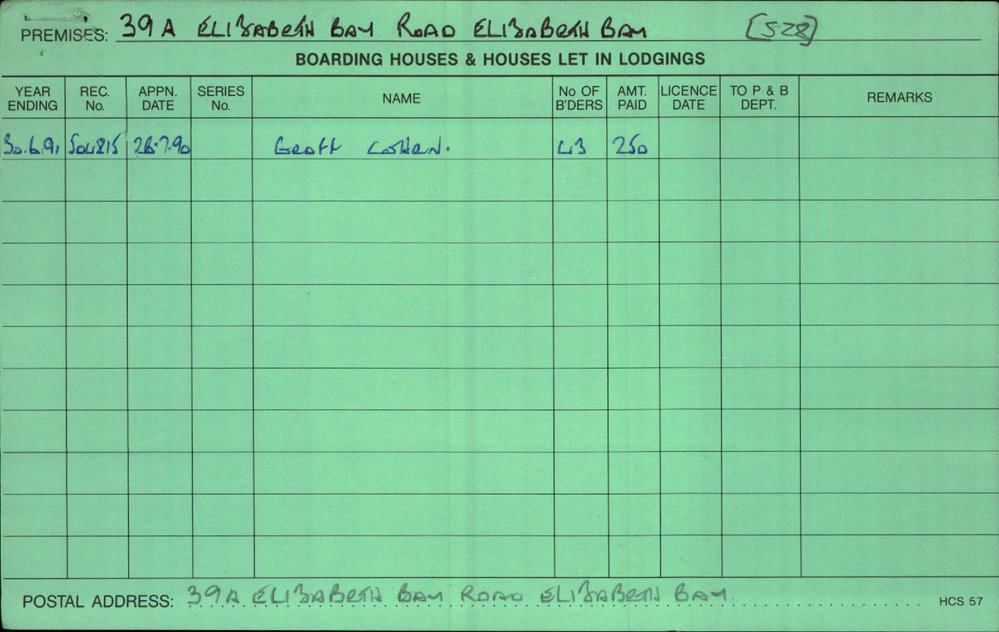 PREMISES: 39 A ELIZABETH BAY ROAD ELIZABETH BAY [528]
BOARDING HOUSES & HOUSES LET IN LODGINGS
YEAR ENDING REC. No. APPN. DATE SERIES No. NAME No OF B'DERS AMT. PAID LICENCE DATE TO P & B DEPT. REMARKS
30.6.91 504815 26.7.90 Geoff 43 250
POSTAL ADDRESS: 39A ELIZABETH BAY ROAD ELIZABETH BAY
HCS 57